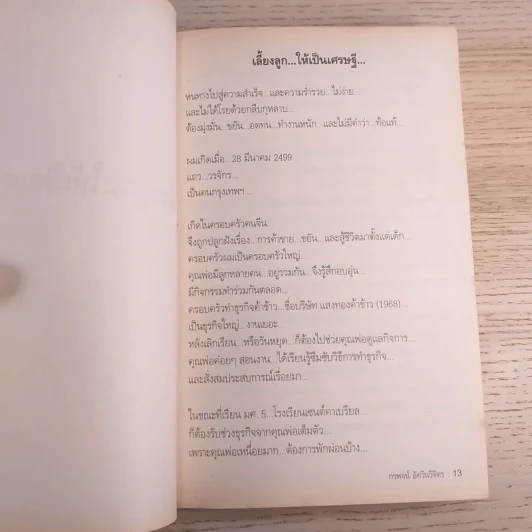 เลี้ยงลูก...ให้เป็นเศรษฐี...
หนทางไปสู่ความสำเร็จ...และความร่ำรวย...ไม่ง่าย...
และไม่ได้โรยด้วยกลีบกุหลาบ...
ต้องมุ่งมั่น...ขยัน...อดทน...ทำงานหนัก...และไม่มีคำว่า...ท้อแท้...
ผมเกิดเมื่อ...28 มีนาคม 2499...
แถว...วรจักร...
เป็นคนกรุงเทพฯ...
เกิดในครอบครัวคนจีน...
จึงถูกปลูกฝังเรื่อง...การค้าขาย...ขยัน...และสู้ชีวิตมาตั้งแต่เด็ก...
ครอบครัวผมเป็นครอบครัวใหญ่...
คุณพ่อมีลูกหลายคน...อยู่รวมกัน...จึงรู้สึกอบอุ่น...
มีกิจกรรมทำร่วมกันตลอด...
ครอบครัวทำธุรกิจค้าข้าว...ชื่อบริษัท แสงทองค้าข้าว (1968)...
เป็นธุรกิจใหญ่...งานเยอะ...
หลังเลิกเรียน...หรือวันหยุด...ก็ต้องไปช่วยคุณพ่อดูแลกิจการ...
คุณพ่อค่อยๆ สอนงาน...ได้เรียนรู้ซึมซับวิธีการทำธุรกิจ...
และสั่งสมประสบการณ์เรื่อยมา...
ในขณะที่เรียน มศ. 5...โรงเรียนเซนต์คาเบรียล...
ก็ต้องรับช่วงธุรกิจจากคุณพ่อเต็มตัว...
เพราะคุณพ่อเหนื่อยมาก...ต้องการพักผ่อนบ้าง...
กรพจน์ อัศวินวิจิตร 13